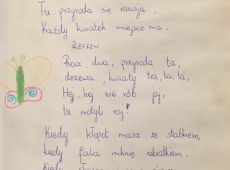 Tu przyroda się rozwija
Każdy kwiatek miejsce ma.
REFREN
Raz, dwa, przyroda ta,
drzewa, kwiaty tra, ta, ta,
Hej, hej nie rób
tu motyli raj!
Kiedy kłopot masz ze statkiem,
kiedy fala mknie